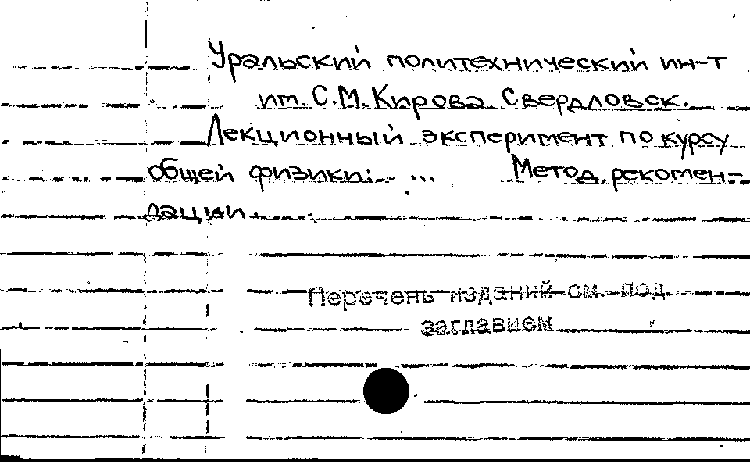 Уральский политехнический ин-т
им. С.М. Кирова. Свердловск.
Лекционный эксперимент по курсу
общей физики: ... Метод. рекомен-
дации.
Перечень изданий см. под
заглавием